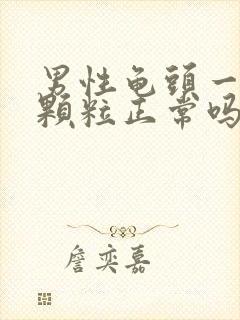 男性龟頭一
顆粒正常吗
詹奕嘉